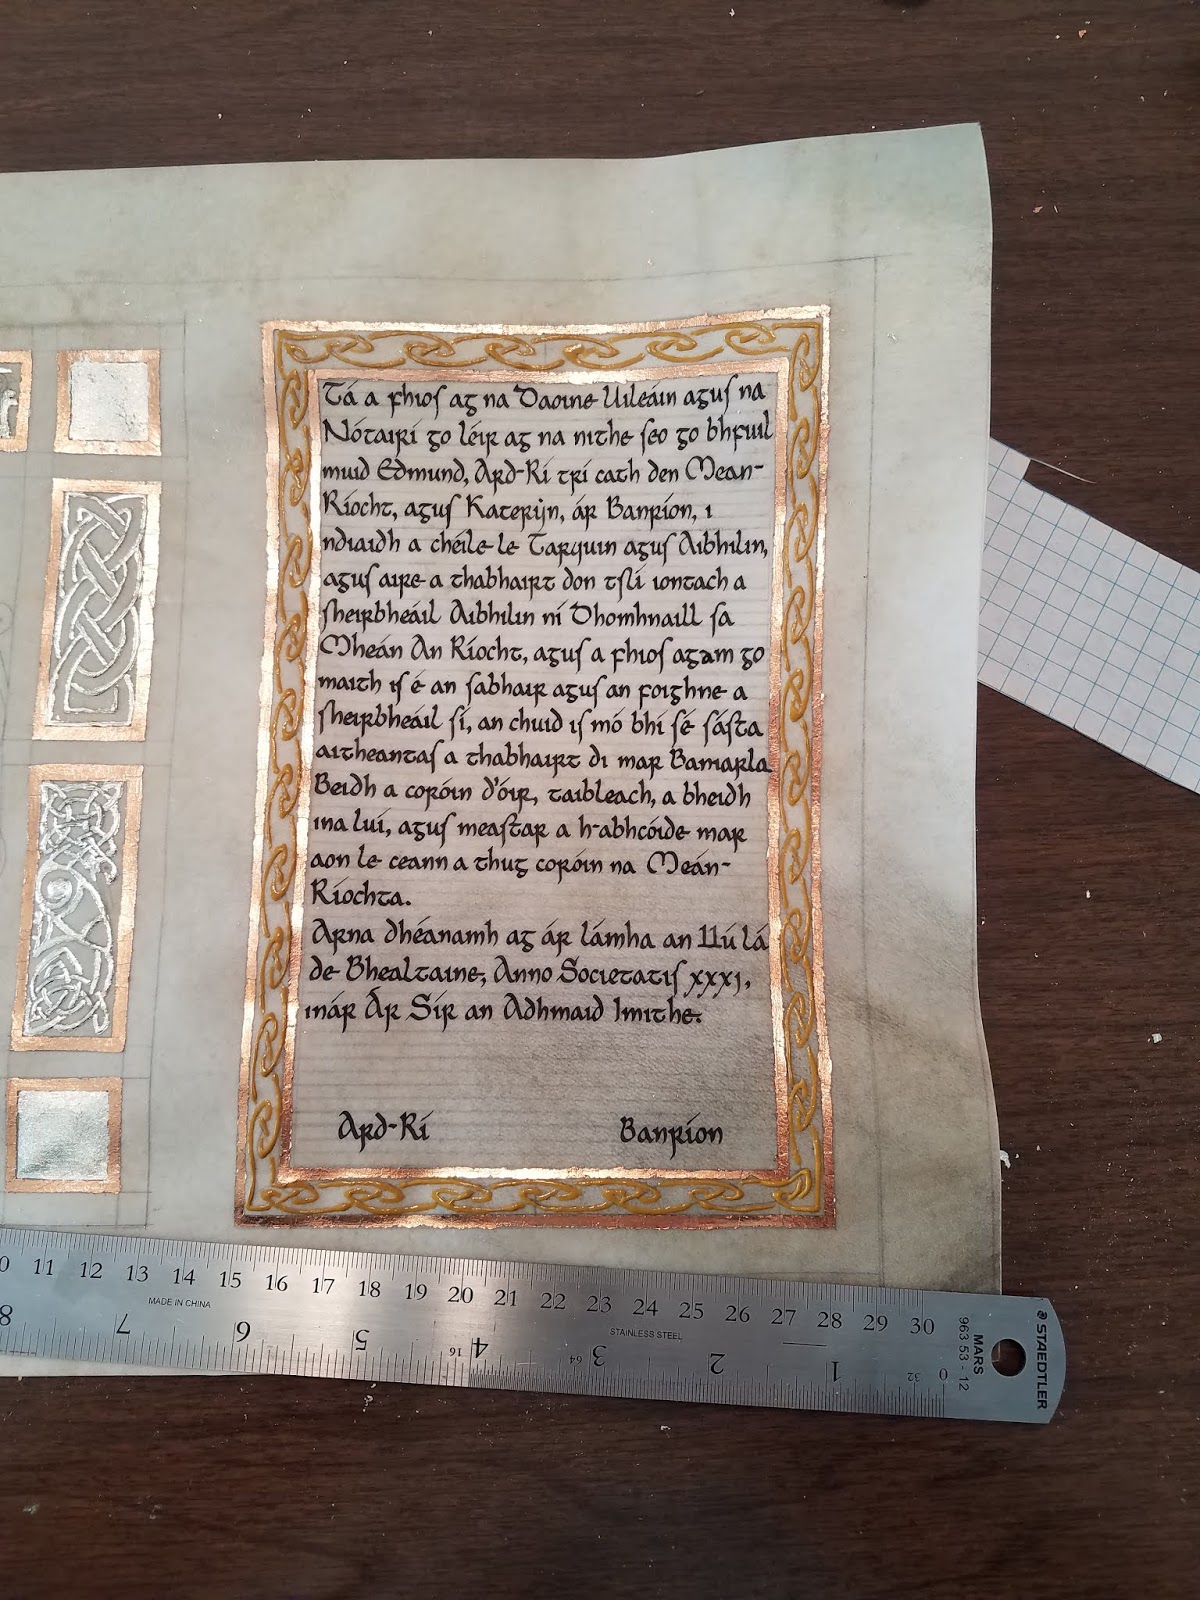 Tá a fhios ag na Daoine Uileáin agus na
Nótairí go léir ag na nithe seo go bhfuil
muid Edmund, Ard-Rí trí cath den Mean-
Ríocht, agus Katerijn, ár Banríon, i
ndiaidh a chéile le Tarquin agus Aibhilin,
agus aire a thabhairt don tslí iontach a
sheirbheáil Aibhilin ní Dhomhnaill sa
Mheán An Ríocht, agus a fhios agam go
maith is é an sabhair agus an foighne a
sheirbheáil sí, an chuid is mó bhí sé sásta
aitheantas a thabhairt di mar Baniarla
Beidh a coróin d'óir, taibleach, a bheidh
ina luí, agus meastar a h-abhcóide mar
aon le ceann a thug coróin na Meán-
Ríochta.
Arna dhéanamh ag ár lámha an 11ú lá
de Bhealtaine, Anno Societatis xxxj,
inár Ár Sír an Adhmaid Imithe.
Ard-Rí Banríon
10 11 12 13 14 15 16 17 18 19 20 21 22 23 24 25 26 27 28 29 30
MADE IN CHINA
STAINLESS STEEL
8 7 6 5 4 3 2 1 0
16 64 32
MARS
963 53-12
STAEDTLER